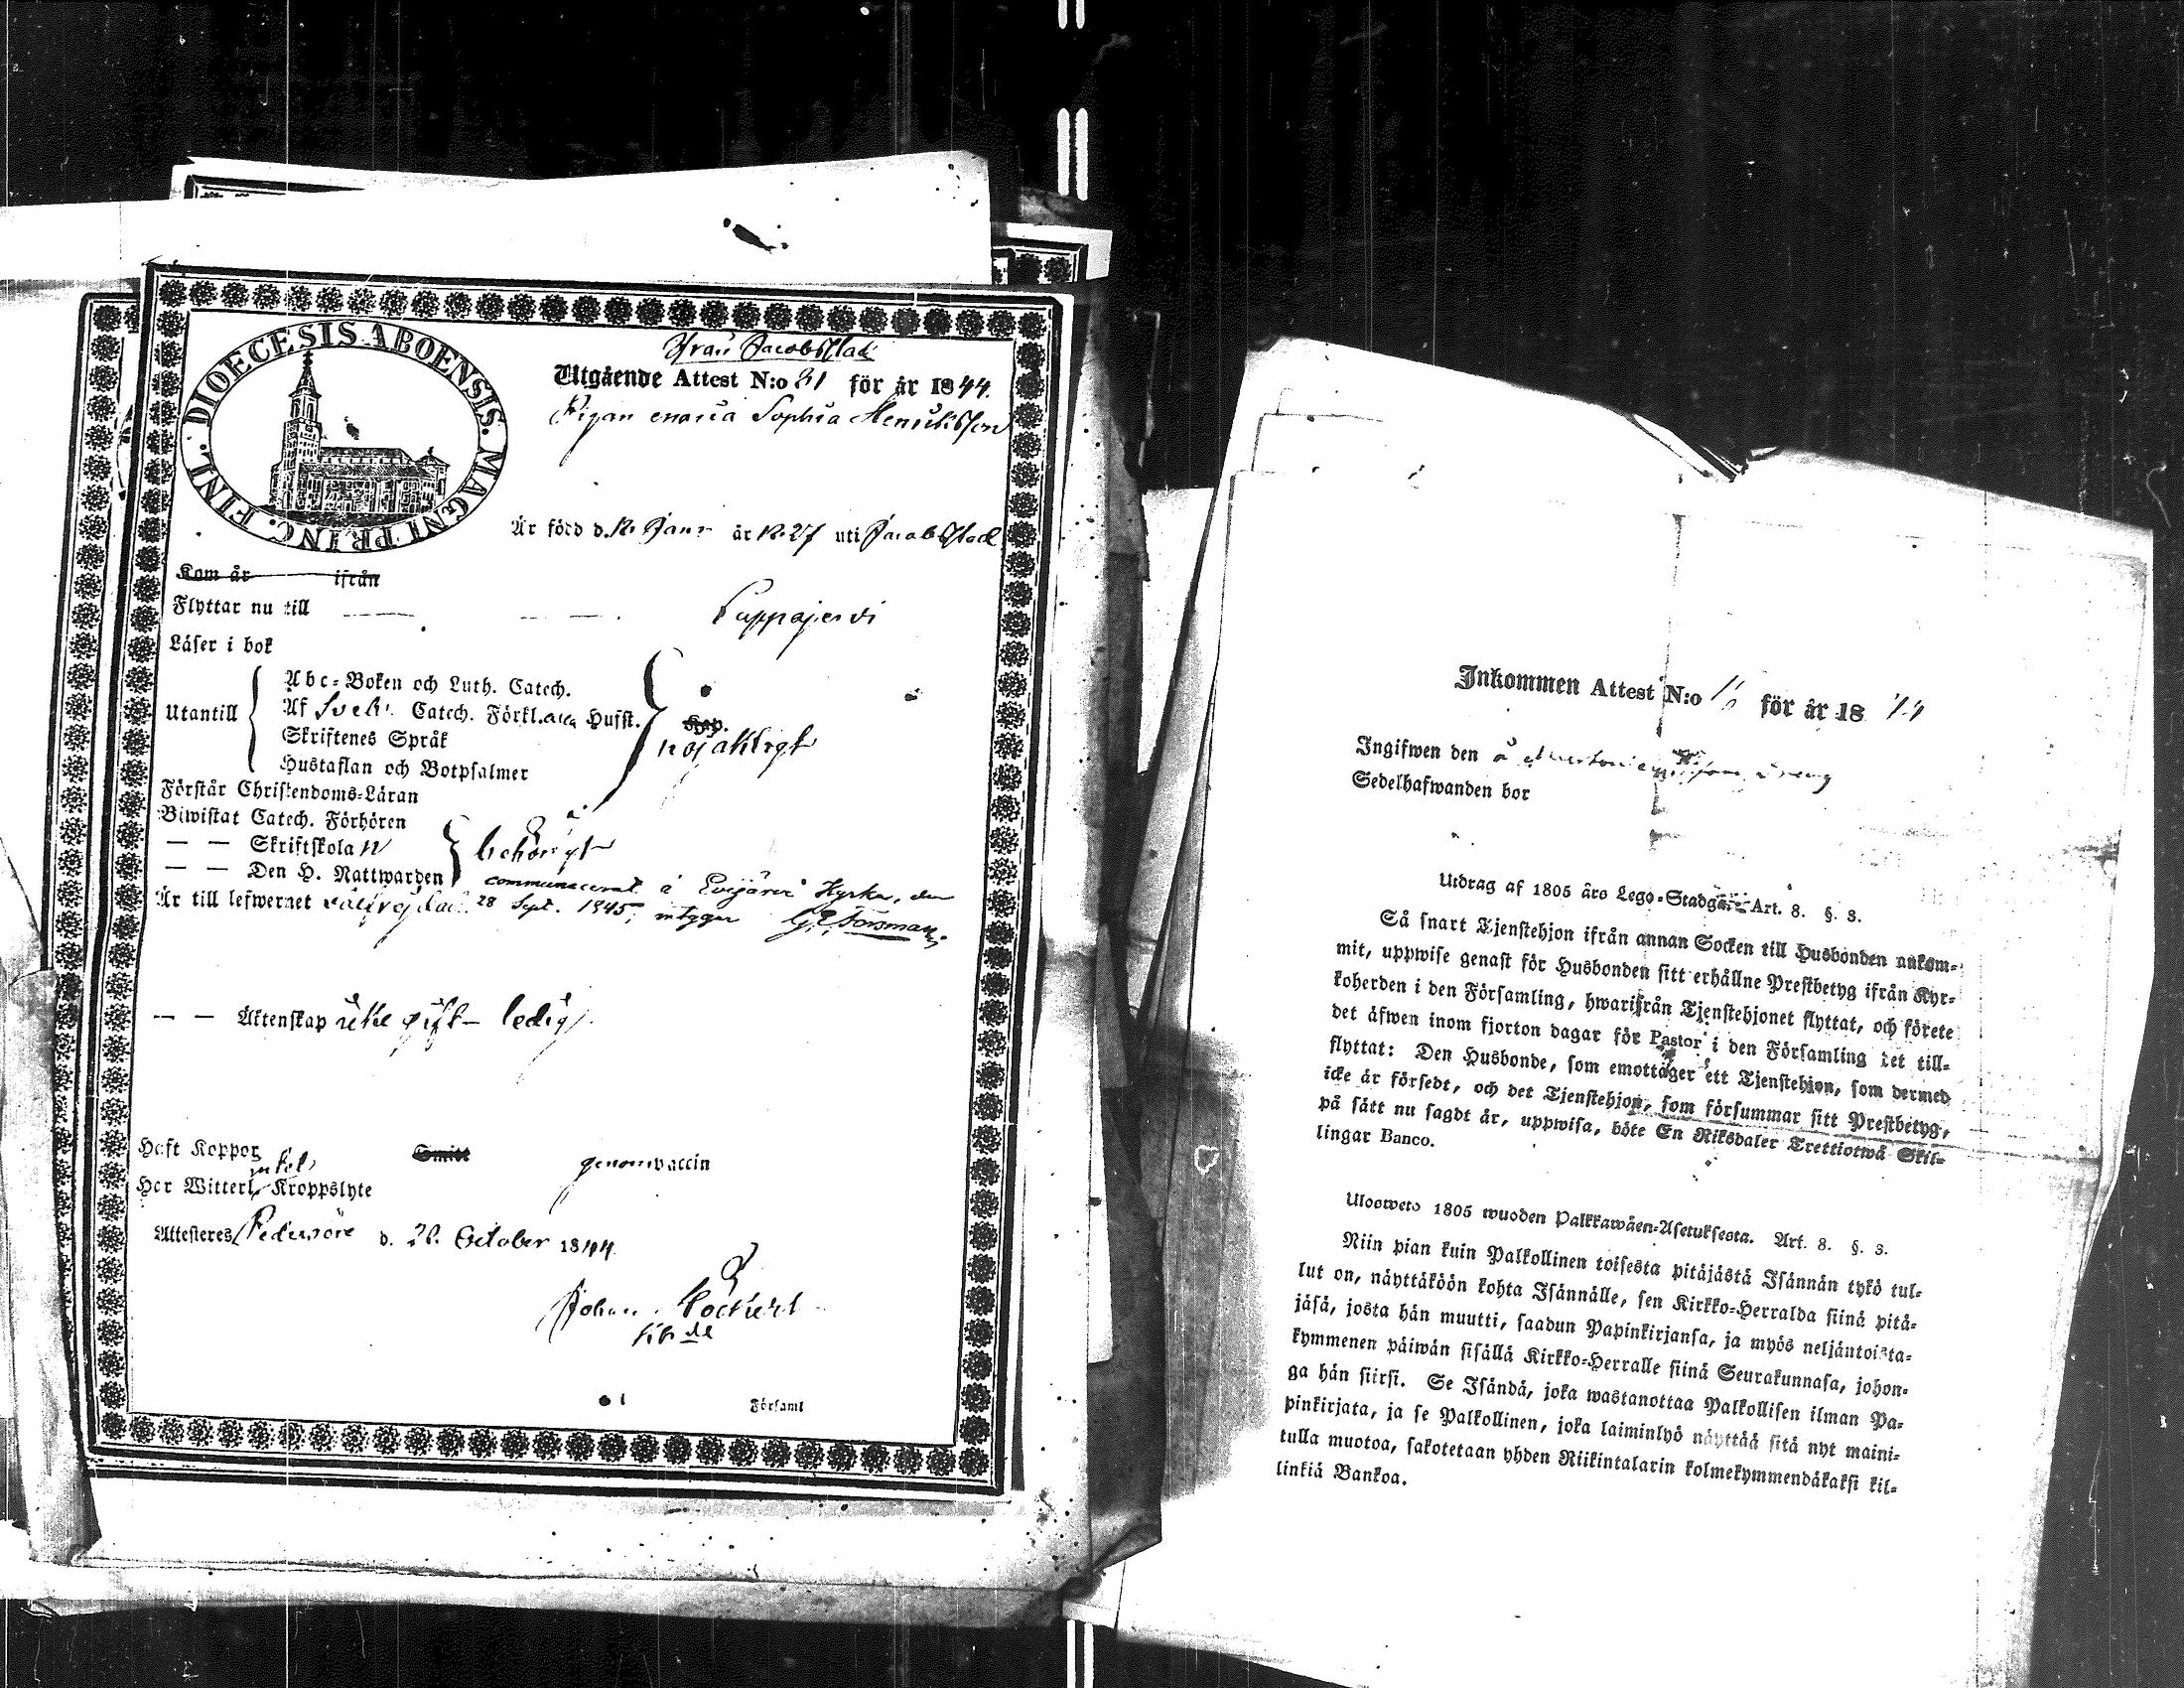 DIOECESIS ABOENSIS. MAGNI PRINC. FINL.
Från Jacobstad
Utgående Attest N:o 81 för år 1844.
Pigan Maria Sophia Henriksson
Är född d. 12 Janr år 1827 uti Jacobstad
Kom år ifrån
Flyttar nu till Lappajervi
Läser i bok
Utantill
Abc-Boken och Luth. Catech.
Af Sveb. Catech. Förkl. Husst.
Skriftenes Språk
Hustaflan och Botpsalmer
nöjaktigt
Förstår Christendoms-Läran
Biwistat Catech. Förhören
— — Skriftskolan
— — Den H. Nattwarden
behörigt
communicerat å Evijärvi Kyrka, den
28 Sept. 1845, intygar G. E. Forsman.
Är till lefwernet välfrejdad.
— — Äktenskap icke gift – ledig.
Haft Koppor genom vaccin
Har Witterl. Kroppslyte
Attesteres Pedersöre d. 26 October 1844.
Johan
Församl
Inkommen Attest N:o för år 18 44
Ingifwen den
Sedelhafwanden bor
Utdrag af 1805 års Lego-Stadga Art. 8. §. 3.
Så snart Tjenstehjon ifrån annan Socken till Husbonden ankom-
mit, uppwise genast för Husbonden sitt erhållne Prestbetyg ifrån Kyr-
koherden i den Församling, hwarifrån Tjenstehjonet flyttat, och förete
det äfwen inom fjorton dagar för Pastor i den Församling det till-
flyttat: Den Husbonde, som emottager ett Tjenstehjon, som dermed
icke är försedt, och det Tjenstehjon, som försummar sitt Prestbetyg,
på sätt nu sagdt är, uppwisa, böte En Riksdaler Trettiotwå Skil-
lingar Banco.
Ulosweto 1805 wuoden Palkkawäen-Asetuksesta. Art. 8. §. 3.
Niin pian kuin Palkollinen toisesta pitäjästä Isännän tykö tul-
lut on, näyttäköön kohta Isännälle, sen Kirkko-Herralda siinä pitä-
jäsä, josta hän muutti, saadun Papinkirjansa, ja myös neljäntoista-
kymmenen päiwän sisällä Kirkko-Herralle siinä Seurakunnasa, johon-
ga hän siirsi. Se Isändä, joka wastanottaa Palkollisen ilman Pa-
pinkirjata, ja se Palkollinen, joka laiminlyö näyttää sitä nyt maini-
tulla muotoa, sakotetaan yhden Riikintalarin kolmekymmendäkaksi kil-
linkiä Bankoa.